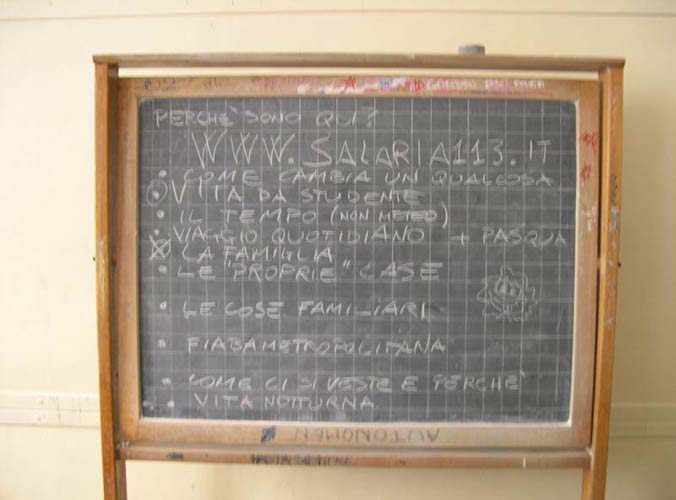 PERCHE' SONO QUI?
WWW.SALARIA113.IT
• COME CAMBIA UN QUALCOSA
• VITA DA STUDENTE
• IL TEMPO (NON METEO)
• VIAGGIO QUOTIDIANO + PASQUA
X LA FAMIGLIA
• LE "PROPRIE" CASE
• LE COSE FAMILIARI
• FIABA METROPOLITANA
• COME CI SI VESTE E PERCHE'
• VITA NOTTURNA
AUTONOMEN